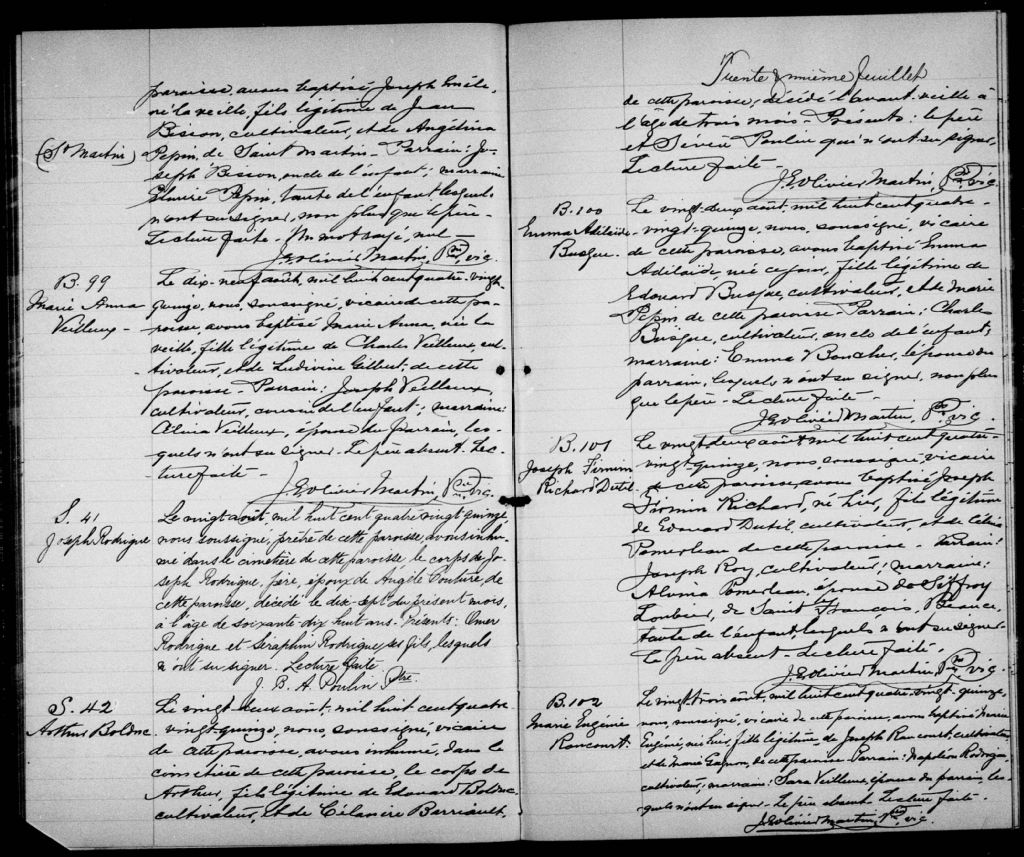 paroisse, avons baptisé Joseph Émile,
né la veille, fils légitime de Jean
Bisson, cultivateur, et de Angélina
(St Martin)
Pepin, de Saint Martin - Parrain: Jo-
seph Bisson, oncle de l'enfant; marraine
Pepin, tante de l'enfant, lesquels
n'ont su signer, non plus que le père -
Lecture faite - Un mot rayé, nul -
J. E. Olivier Martin, Ptre vic.
B. 99
Marie Anna
Veilleux -
Le dix-neuf août, mil huit cent quatre-vingt
quinze, nous, soussigné, vicaire de cette pa-
roisse avons baptisé Marie Anna, née la
veille, fille légitime de Charles Veilleux, cul-
tivateur, et de Ludivine Gilbert, de cette
paroisse - Parrain: Joseph Veilleux,
cultivateur, cousin de l'enfant; marraine:
Veilleux, épouse du parrain, les-
quels n'ont su signer. Le père absent. Lec-
ture faite -
J. E. Olivier Martin, Ptre vic.
S. 41
Joseph Rodrigue
Le vingt août, mil huit cent quatre vingt quinze,
nous soussigné, prêtre de cette paroisse, avons inhu-
mé dans le cimetière de cette paroisse, le corps de Jo-
seph Rodrigue, père, époux de Angèle Couture, de
cette paroisse, décédé le dix-sept du présent mois,
à l'âge de soixante dix huit ans - Présents: Omer
Rodrigue et Séraphin Rodrigue, ses fils, lesquels
n'ont su signer. Lecture faite
J. B. A. Poulin Ptre.
S. 42
Arthur Bolduc
Le vingt-deux août, mil huit cent quatre
vingt-quinze, nous, soussigné, vicaire
de cette paroisse, avons inhumé, dans le
cimetière de cette paroisse, le corps de
Arthur, fils légitime de Edouard Bolduc,
cultivateur, et de Célanire Barriault,
Trente & unième feuillet
de cette paroisse, décédé l'avant-veille à
l'âge de trois mois - Présents: le père
et Poulin qui n'ont su signer,
Lecture faite -
J. E. Olivier Martin, Ptre vic.
B. 100
Emma Adélaïde
Busque.
Le vingt-deux août, mil huit cent quatre-
vingt-quinze, nous, soussigné, vicaire
de cette paroisse, avons baptisé Emma
Adélaïde, née ce jour, fille légitime de
Edouard Busque, cultivateur, et de Marie
Pepin de cette paroisse - Parrain: Charles
Busque, cultivateur, oncle de l'enfant;
marraine: Emma Boucher, épouse du
parrain, lesquels n'ont su signer, non plus
que le père - Lecture faite -
J. E. Olivier Martin, Ptre vic.
B. 101
Joseph Firmin
Richard Dutil
Le vingt-deux août, mil huit cent quatre-
vingt-quinze, nous, soussigné, vicaire
de cette paroisse, avons baptisé Joseph
Firmin Richard, né hier, fils légitime
de Edouard Dutil, cultivateur, et de Célina
Pomerleau de cette paroisse - Parrain:
Joseph Roy, cultivateur; marraine:
Alvina Pomerleau, épouse de Siffroy
Loubier, de Saint François, Beauce,
tante de l'enfant, lesquels n'ont su signer.
Le père absent. Lecture faite.
J. E. Olivier Martin Ptre vic.
B. 102
Marie Eugénie
Rancourt.
Le vingt-trois août, mil huit cent quatre-vingt-quinze,
nous, soussigné, vicaire de cette paroisse, avons baptisé Marie
Eugénie, née hier, fille légitime de Joseph Rancourt, cultivateur
et de Gagnon, de cette paroisse - Parrain: Napoléon Rodrigue
cultivateur; marraine: Sara Veilleux, épouse du parrain, les-
quels n'ont su signer. Le père absent. Lecture faite.
J. E. Olivier Martin, Ptre vic.